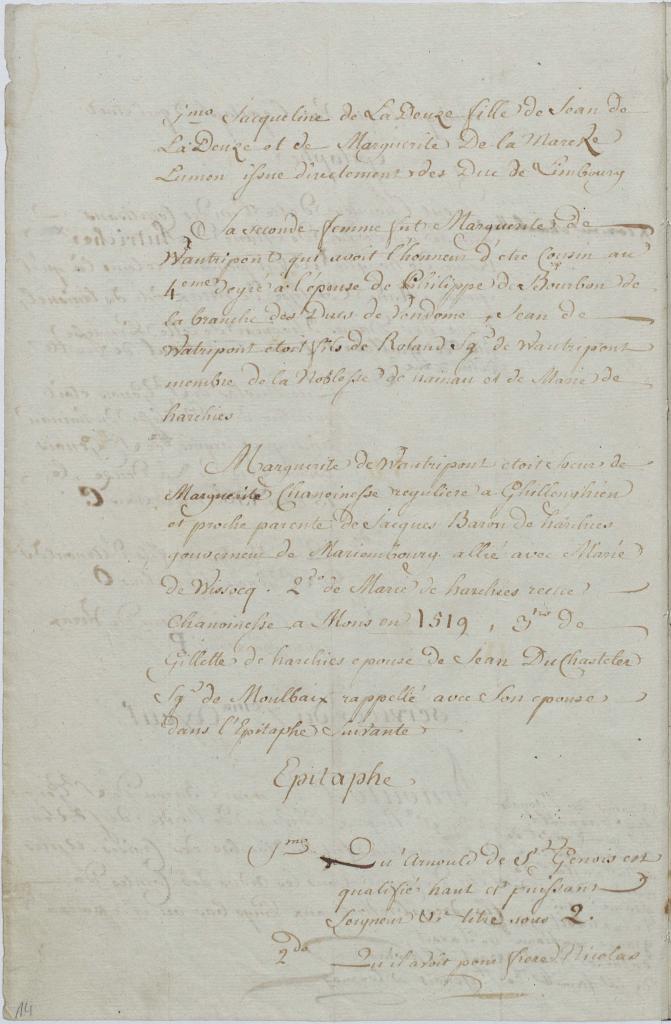 1mo Jacqueline de La Deuze fille de Jean de
La Deuze et de Marguerite De la Marcke
Lumen issue directement des Duc de Limbourg
La seconde femme fut Marguerite de
Wautripont qui avoit l'honneur d'etre Cousin au
4eme degré a l'épouse de Philippe de Bourbon de
la branche des Ducs de Vendome, Jean de
Watripont étoit fils de Roland Sgr de Wautripont
membre de la Noblesse de hainau et de Marie de
harchies
Marguerite de Wautripont étoit soeur de
Marguerite Chanoinesse reguliere a Ghillenghien
et proche parente de Jacques Baron de harchies
gouverneur de Mariembourg allié avec Marie
de Wissocq. 2do de Marie de harchies recue
Chanoinesse a Mons en 1519, 3tio de
Gillette de harchies epouse de Jean Du Chasteler
Sgr de Moulbaix rappellé avec Son epouse
dans l'Epitaphe Suivante
Epitaphe
1mo Qu'Arnould de St Genois est
qualifié haut et puissant
Seigneur Vr titre sous 2.
2do Qu'il avoit pour frere Nicolas
14